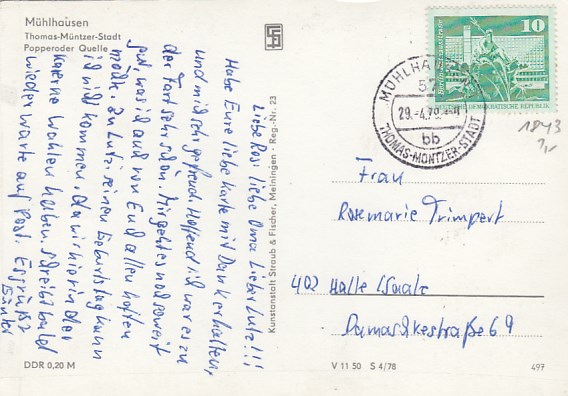 Mühlhausen
Thomas-Müntzer-Stadt
Popperoder Quelle
Liebe Rosi liebe Oma Lieber Lutz!!!
Habe Eure liebe Karte mit Dank erhalten,
und mich gefreut. Hoffend ich war es zu
der Fart sehr schön. Mir geht es noch soweit
gut, was ich auch von Euch allen hoffen
möchte. Zu Lutz, seinen Geburtstag kann
ich nicht kommen, da wir hier in der
Kaserne wahlen haben. Schreibt bald
wieder warte auf Post. Es grüßt
Günter
DDR 0,20 M
Kunstanstalt Straub & Fischer, Meiningen · Reg.-Nr. 23
V 11 50 S 4/78
497
10
DEMOKRATISCHE REPUBLIK
MÜHLHAUSEN
29.-4.79
bb
THOMAS-MÜNTZER-STADT
1843
Frau
Rosemarie Trimpert
402 Halle (Saale
Damaschkestraße 69